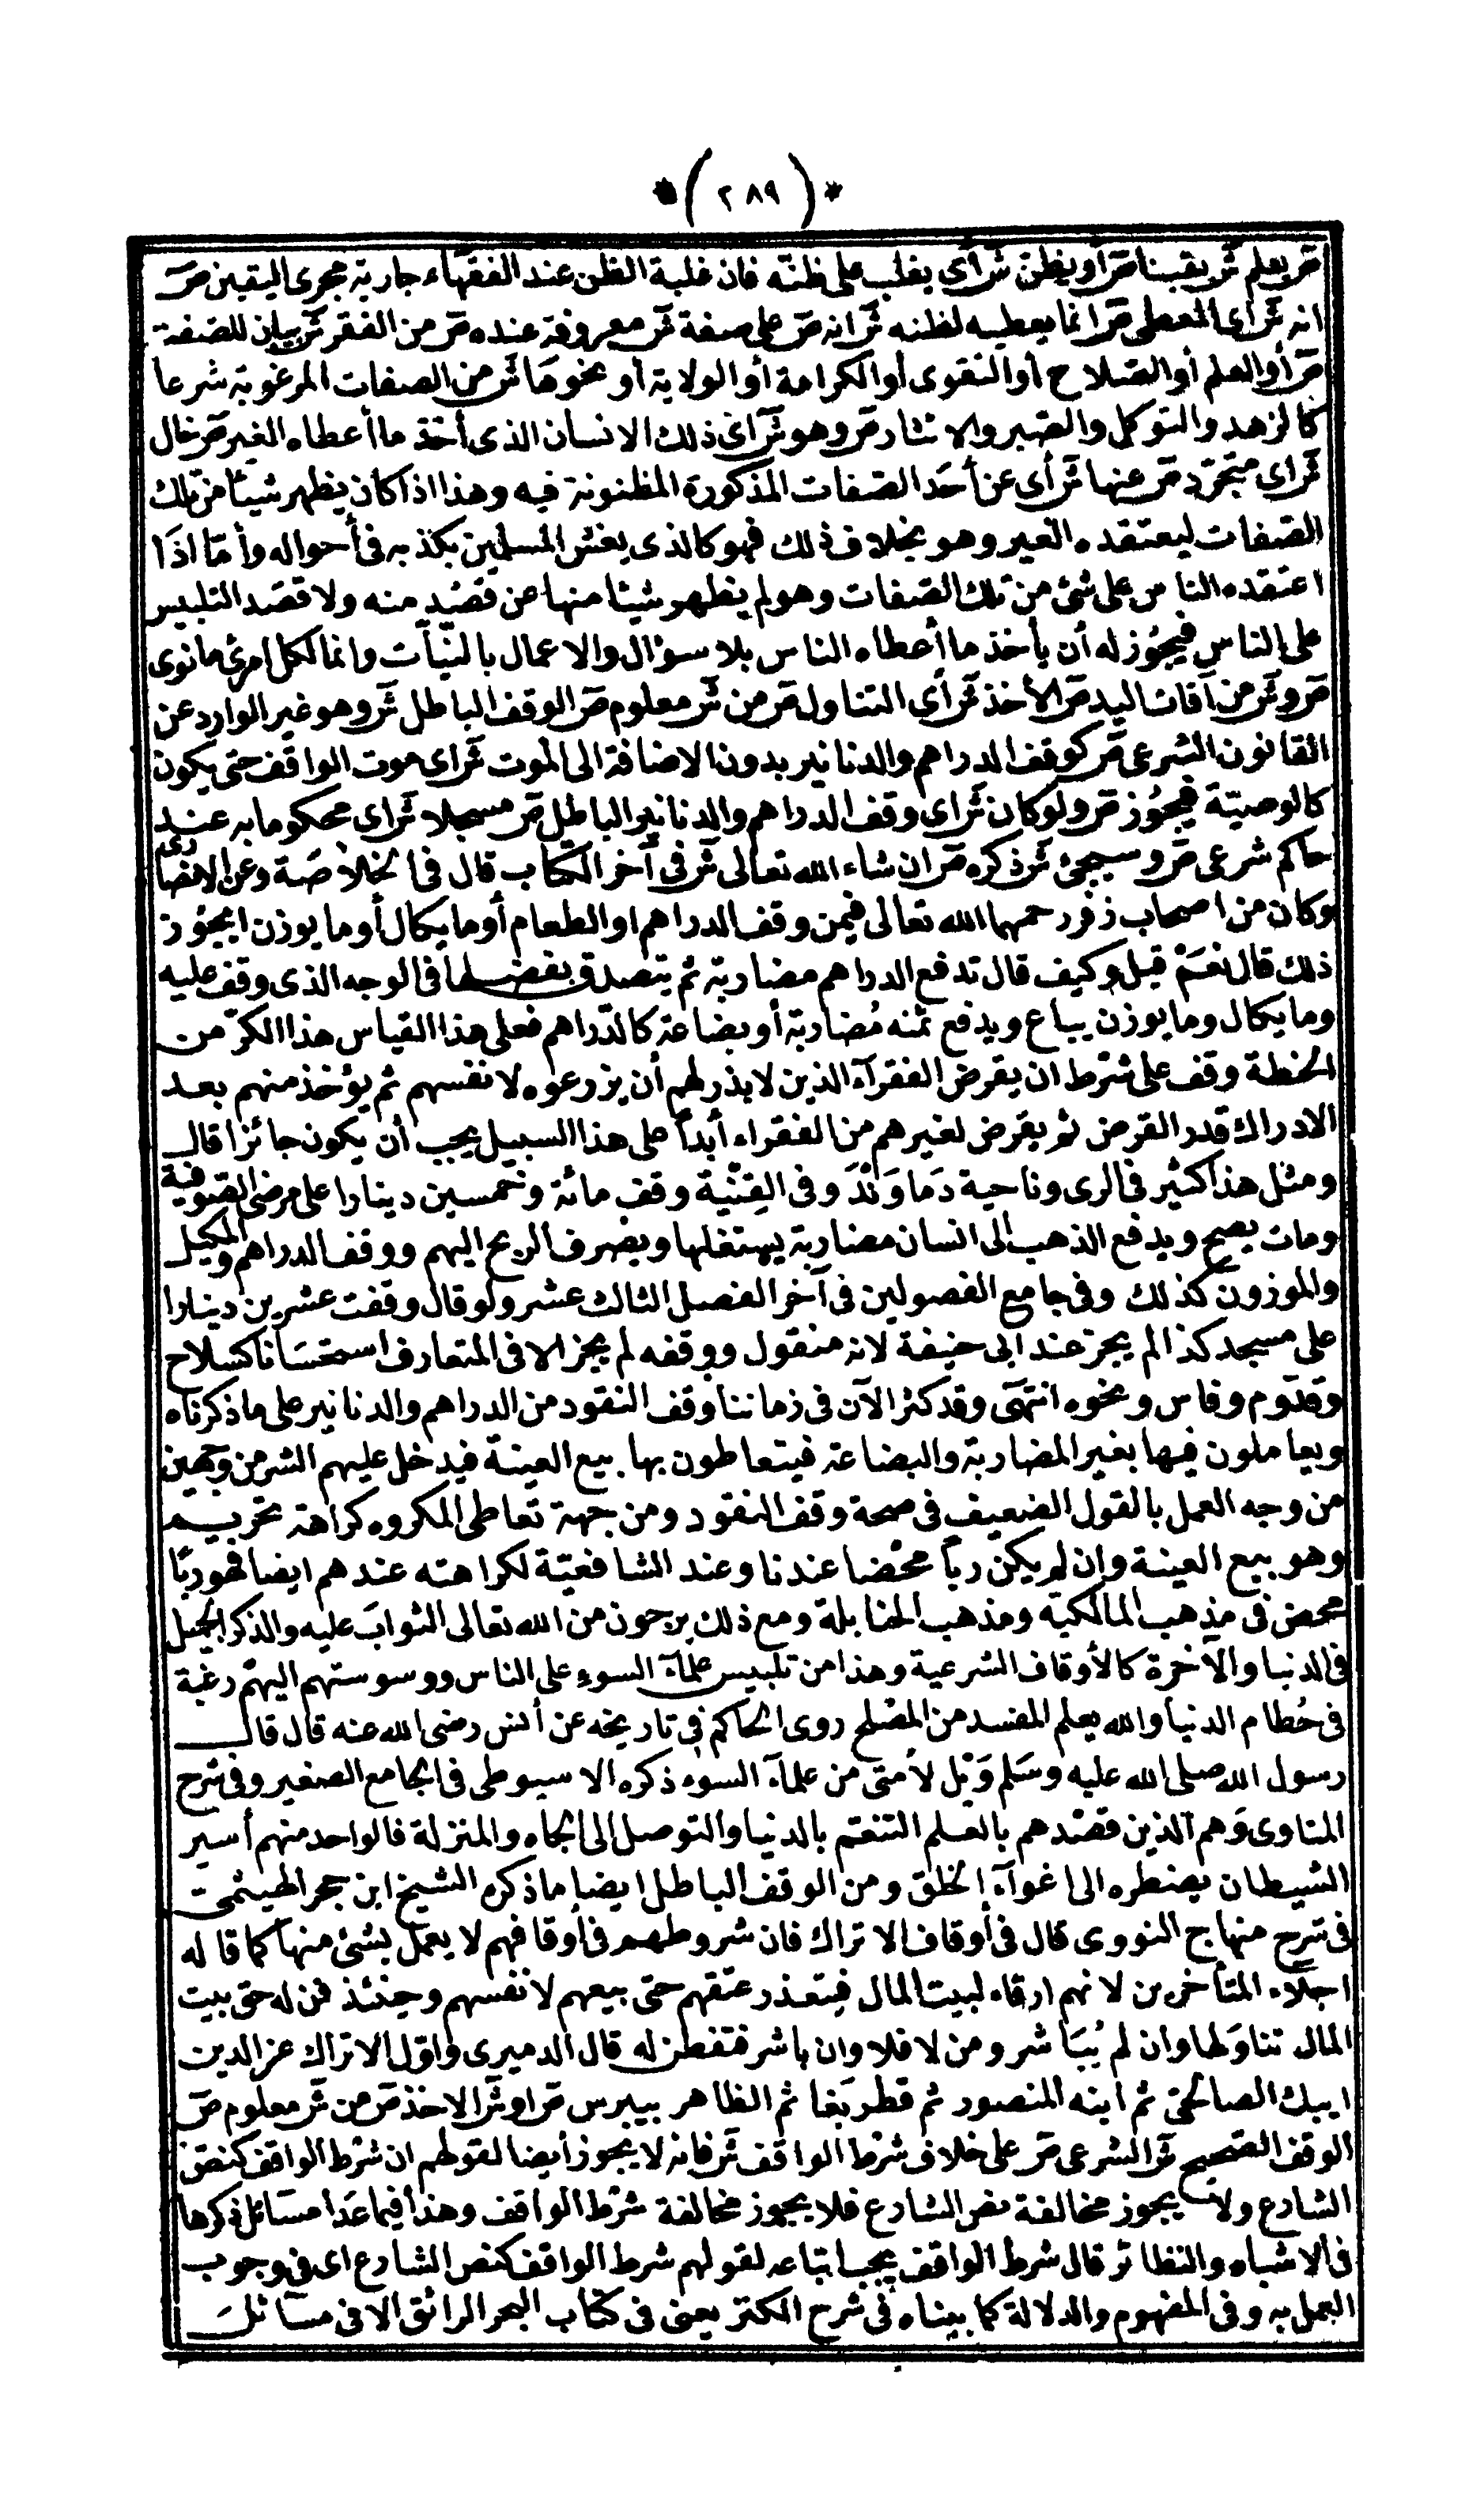 *(٢٨٩)*
ص يعلم ش يقينا ص أو يظن ش أى يغلب على ظنه فان غلبة الظن عند الفقهاء جارية مجرى اليقين ص
انه ش اى المعطى ص انما يعطيه لظنه ش انه ص على صفة ش معروفة عنده ص من الفقر ش بيان للصفة
ص أو العلم أو الصلاح أو التقوى أو الكرامة أو الولاية أو نحوها ش من الصفات المرغوبة شرعا
كالزهد والتوكل والصبر والايثار ص وهو ش أى ذلك الانسان الذى أخذ ما أعطاه الغير ص خال
ش اى متجرد ص عنها ش أى عن أحد الصفات المذكورة المظنونة فيه وهذا اذا كان يظهر شيئا من تلك
الصفات ليعتقده الغير وهو بخلاف ذلك فهو كالذى يغش المسلمين بكذبه فى أحواله وأما اذا
اعتقده الناس على شئ من تلك الصفات وهو لم يظهر شيئا منها عن قصد منه ولا قصد التلبيس
على الناس فيجوز له أن يأخذ ما أعطاه الناس بلا سؤال والاعمال بالنيات وانما لكل امرئ ما نوى
ص و ش من آفات اليد ص الأخذ ش أى التناول ص من ش معلوم ص الوقف الباطل ش وهو غير الوارد عن
القانون الشرعى ص كوقف الدراهم والدنانير بدون الاضافة الى الموت ش اى موت الواقف حتى يكون
كالوصية فيجوز ص ولو كان ش اى وقف الدراهم والدنانير الباطل ص مسجلا ش اى محكوما به عند
حاكم شرعى ص وسيجئ ش ذكره ص ان شاء الله تعالى ش فى آخر الكتاب قال فى الخلاصة وعن الانصارى
وكان من اصحاب زفر رحمهما الله تعالى فيمن وقف الدراهم او الطعام أو ما يكال أو ما يوزن ايجوز
ذلك قال نعم قيل وكيف قال تدفع الدراهم مضاربة ثم يتصدق بفضلها فى الوجه الذى وقف عليه
وما يكال وما يوزن يباع ويدفع ثمنه مضاربة أو بضاعة كالدراهم فعلى هذا القياس هذا الكر من
الحنطة وقف على شرط ان يقرض الفقراء الذين لا بذر لهم أن يزرعوه لانفسهم ثم يؤخذ منهم بعد
الادراك قدر القرض ثم يقرض لغيرهم من الفقراء أبدا على هذا السبيل يجب أن يكون جائزا قال
ومثل هذا كثير فى الرى وناحية دماوند وفى القنية وقف مائة وخمسين دينارا على مرضى الصوفية
ومات يصح ويدفع الذهب الى انسان مضاربة يستغلها ويصرف الربح اليهم ووقف الدراهم والمكيل
والموزون كذلك وفى جامع الفصولين فى آخر الفصل الثالث عشر ولو قال وقفت عشرين دينارا
على مسجد كذا لم يجز عند ابى حنيفة لانه منقول ووقفه لم يجز الا فى المتعارف استحسانا كسلاح
وقدوم وفاس ونحوه انتهى وقد كثر الآن فى زماننا وقف النقود من الدراهم والدنانير على ما ذكرناه
ويعاملون فيها بغير المضاربة والبضاعة فيتعاطون بها بيع العينة فيدخل عليهم الشر من وجهين
من وجه العمل بالقول الضعيف فى صحة وقف النقود ومن جهة تعاطى المكروه كراهة تحريم
وهو بيع العينة وان لم يكن ربا محضا عندنا وعند الشافعية لكراهته عندهم ايضا فهو ربا
محض فى مذهب المالكية ومذهب الحنابلة ومع ذلك يرجون من الله تعالى الثواب عليه والذكر الجميل
فى الدنيا والآخرة كالأوقاف الشرعية وهذا من تلبيس علماء السوء على الناس ووسوستهم اليهم رغبة
فى حطام الدنيا والله يعلم المفسد من المصلح روى الحاكم فى تاريخه عن أنس رضى الله عنه قال قال
رسول الله صلى الله عليه وسلم ويل لأمتى من علماء السوء ذكره الاسيوطى فى الجامع الصغير وفى شرح
المناوى وهم الذين قصدهم بالعلم التنعم بالدنيا والتوصل الى الجاه والمنزلة فالواحد منهم أسير
الشيطان يضطره الى اغواء الخلق ومن الوقف الباطل ايضا ما ذكره الشيخ ابن حجر الهيثمى
فى شرح منهاج النووى قال فى أوقاف الاتراك فان شروطهم فى أوقافهم لا يعمل بشئ منها كما قاله
اجلاء المتأخرين لانهم ارقاء لبيت المال فيتعذر عتقهم حتى بيعهم لانفسهم وحينئذ فمن له حق بيت
المال تناولها وان لم يباشر ومن لا فلا وان باشر فتفطن له قال الدميرى واول الاتراك عز الدين
ايبك الصالحى ثم ابنه المنصور ثم قطز بغا ثم الظاهر بيبرس ص او ش الاخذ ص من ش معلوم ص
الوقف الصحيح ش الشرعى ص على خلاف شرط الواقف ش فانه لا يجوز أيضا لقولهم ان شرط الواقف كنص
الشارع ولا يجوز مخالفة نص الشارع فلا يجوز مخالفة شرط الواقف وهذا فيما عدا مسائل ذكرها
فى الاشباه والنظائر قال شرط الواقف يجب اتباعه لقولهم شرط الواقف كنص الشارع اى فى وجوب
العمل به وفى المفهوم والدلالة كما بيناه فى شرح الكنز يعنى فى كتاب البحر الرائق الا فى مسائل